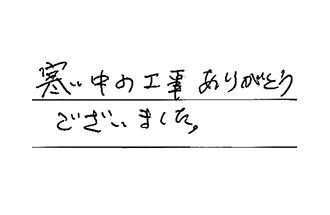 寒い中の工事ありがとう
ございました。